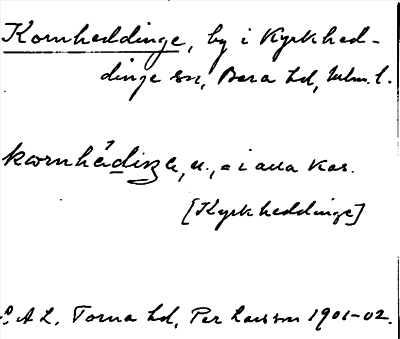 Kornheddinge, by i Kyrkhed-
dinge sn, Bara hd, Mlm. l.
kornhådinga, u., = i alla kas.
[Kyrkheddinge]
P. A L. Torna hd, Per Larsson 1901-02.